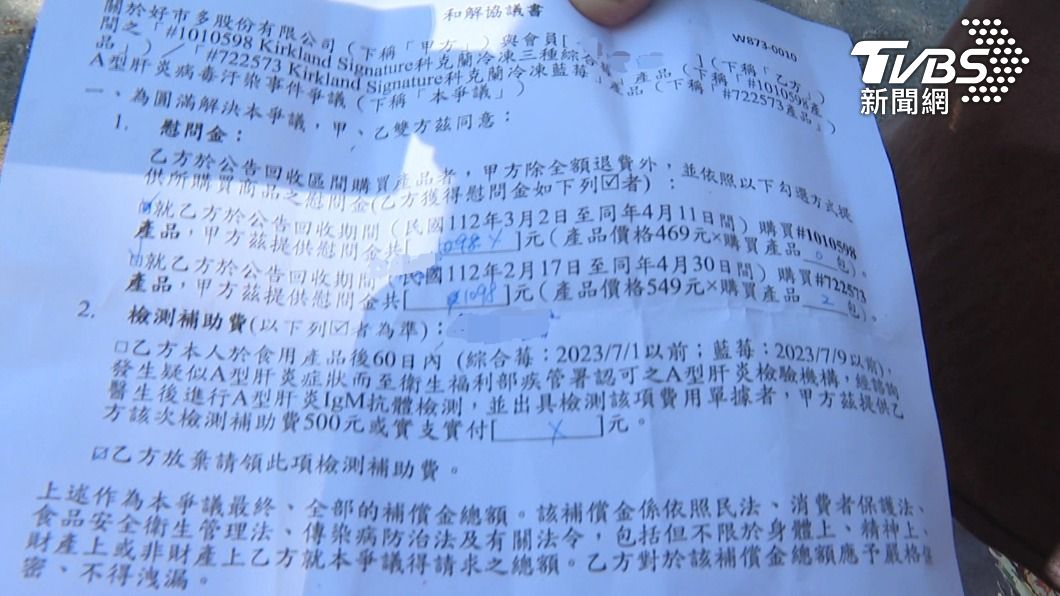 和解協議書
W873-0010
TVBS
新聞網
關於好市多股份有限公司（下稱「甲方」）與會員[
（下稱「乙方」）
間之「#1010598 Kirkland Signature科克蘭冷凍三種綜合莓」產品（下稱「#1010598產
品」）／「#722573 Kirkland Signature科克蘭冷凍藍莓」產品（下稱「#722573產品」）
A型肝炎病毒汙染事件爭議（下稱「本爭議」）
一、為圓滿解決本爭議，甲、乙雙方茲同意：
1. 慰問金：
乙方於公告回收區間購買產品者，甲方除全額退費外，並依照以下勾選方式提
供所購買商品之慰問金(乙方獲得慰問金如下列☑者)：
☑就乙方於公告回收期間（民國112年3月2日至同年4月11日間）購買#1010598
產品，甲方茲提供慰問金共[1098 X]元（產品價格469元×購買產品 0 包）。
☑就乙方於公告回收期間（民國112年2月17日至同年4月30日間）購買#722573
產品，甲方茲提供慰問金共[1098]元（產品價格549元×購買產品 2 包）。
2. 檢測補助費(以下列☑者為準)：
□乙方本人於食用產品後60日內（綜合莓：2023/7/1以前；藍莓：2023/7/9以前)，
發生疑似A型肝炎症狀而至衛生福利部疾管署認可之A型肝炎檢驗機構，經諮詢
醫生後進行A型肝炎IgM抗體檢測，並出具檢測該項費用單據者，甲方茲提供乙
方該次檢測補助費500元或實支實付[X]元。
☑乙方放棄請領此項檢測補助費。
上述作為本爭議最終、全部的補償金總額。該補償金係依照民法、消費者保護法、
食品安全衛生管理法、傳染病防治法及有關法令，包括但不限於身體上、精神上、
財產上或非財產上乙方就本爭議得請求之總額。乙方對於該補償金總額應予嚴格保
密、不得洩漏。